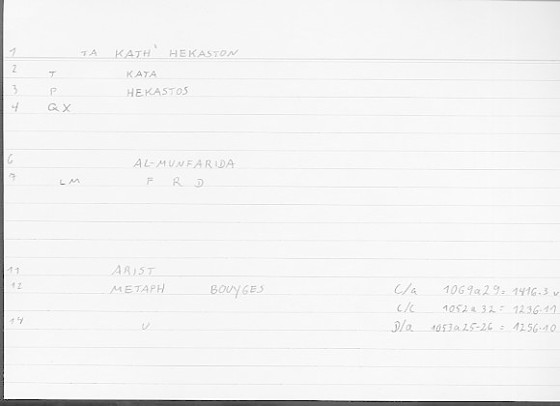 1 TA KATH' HEKASTON
2 T KATA
3 P HEKASTOS
4 QX
6 AL-MUNFARIDA
7 LM F R D
11 ARIST
12 METAPH BOUYGES C/a 1069a29 = 1416.3 v
C/c 1052a32 = 1236.11
14 U D/a 1053a25-26 = 1256.10